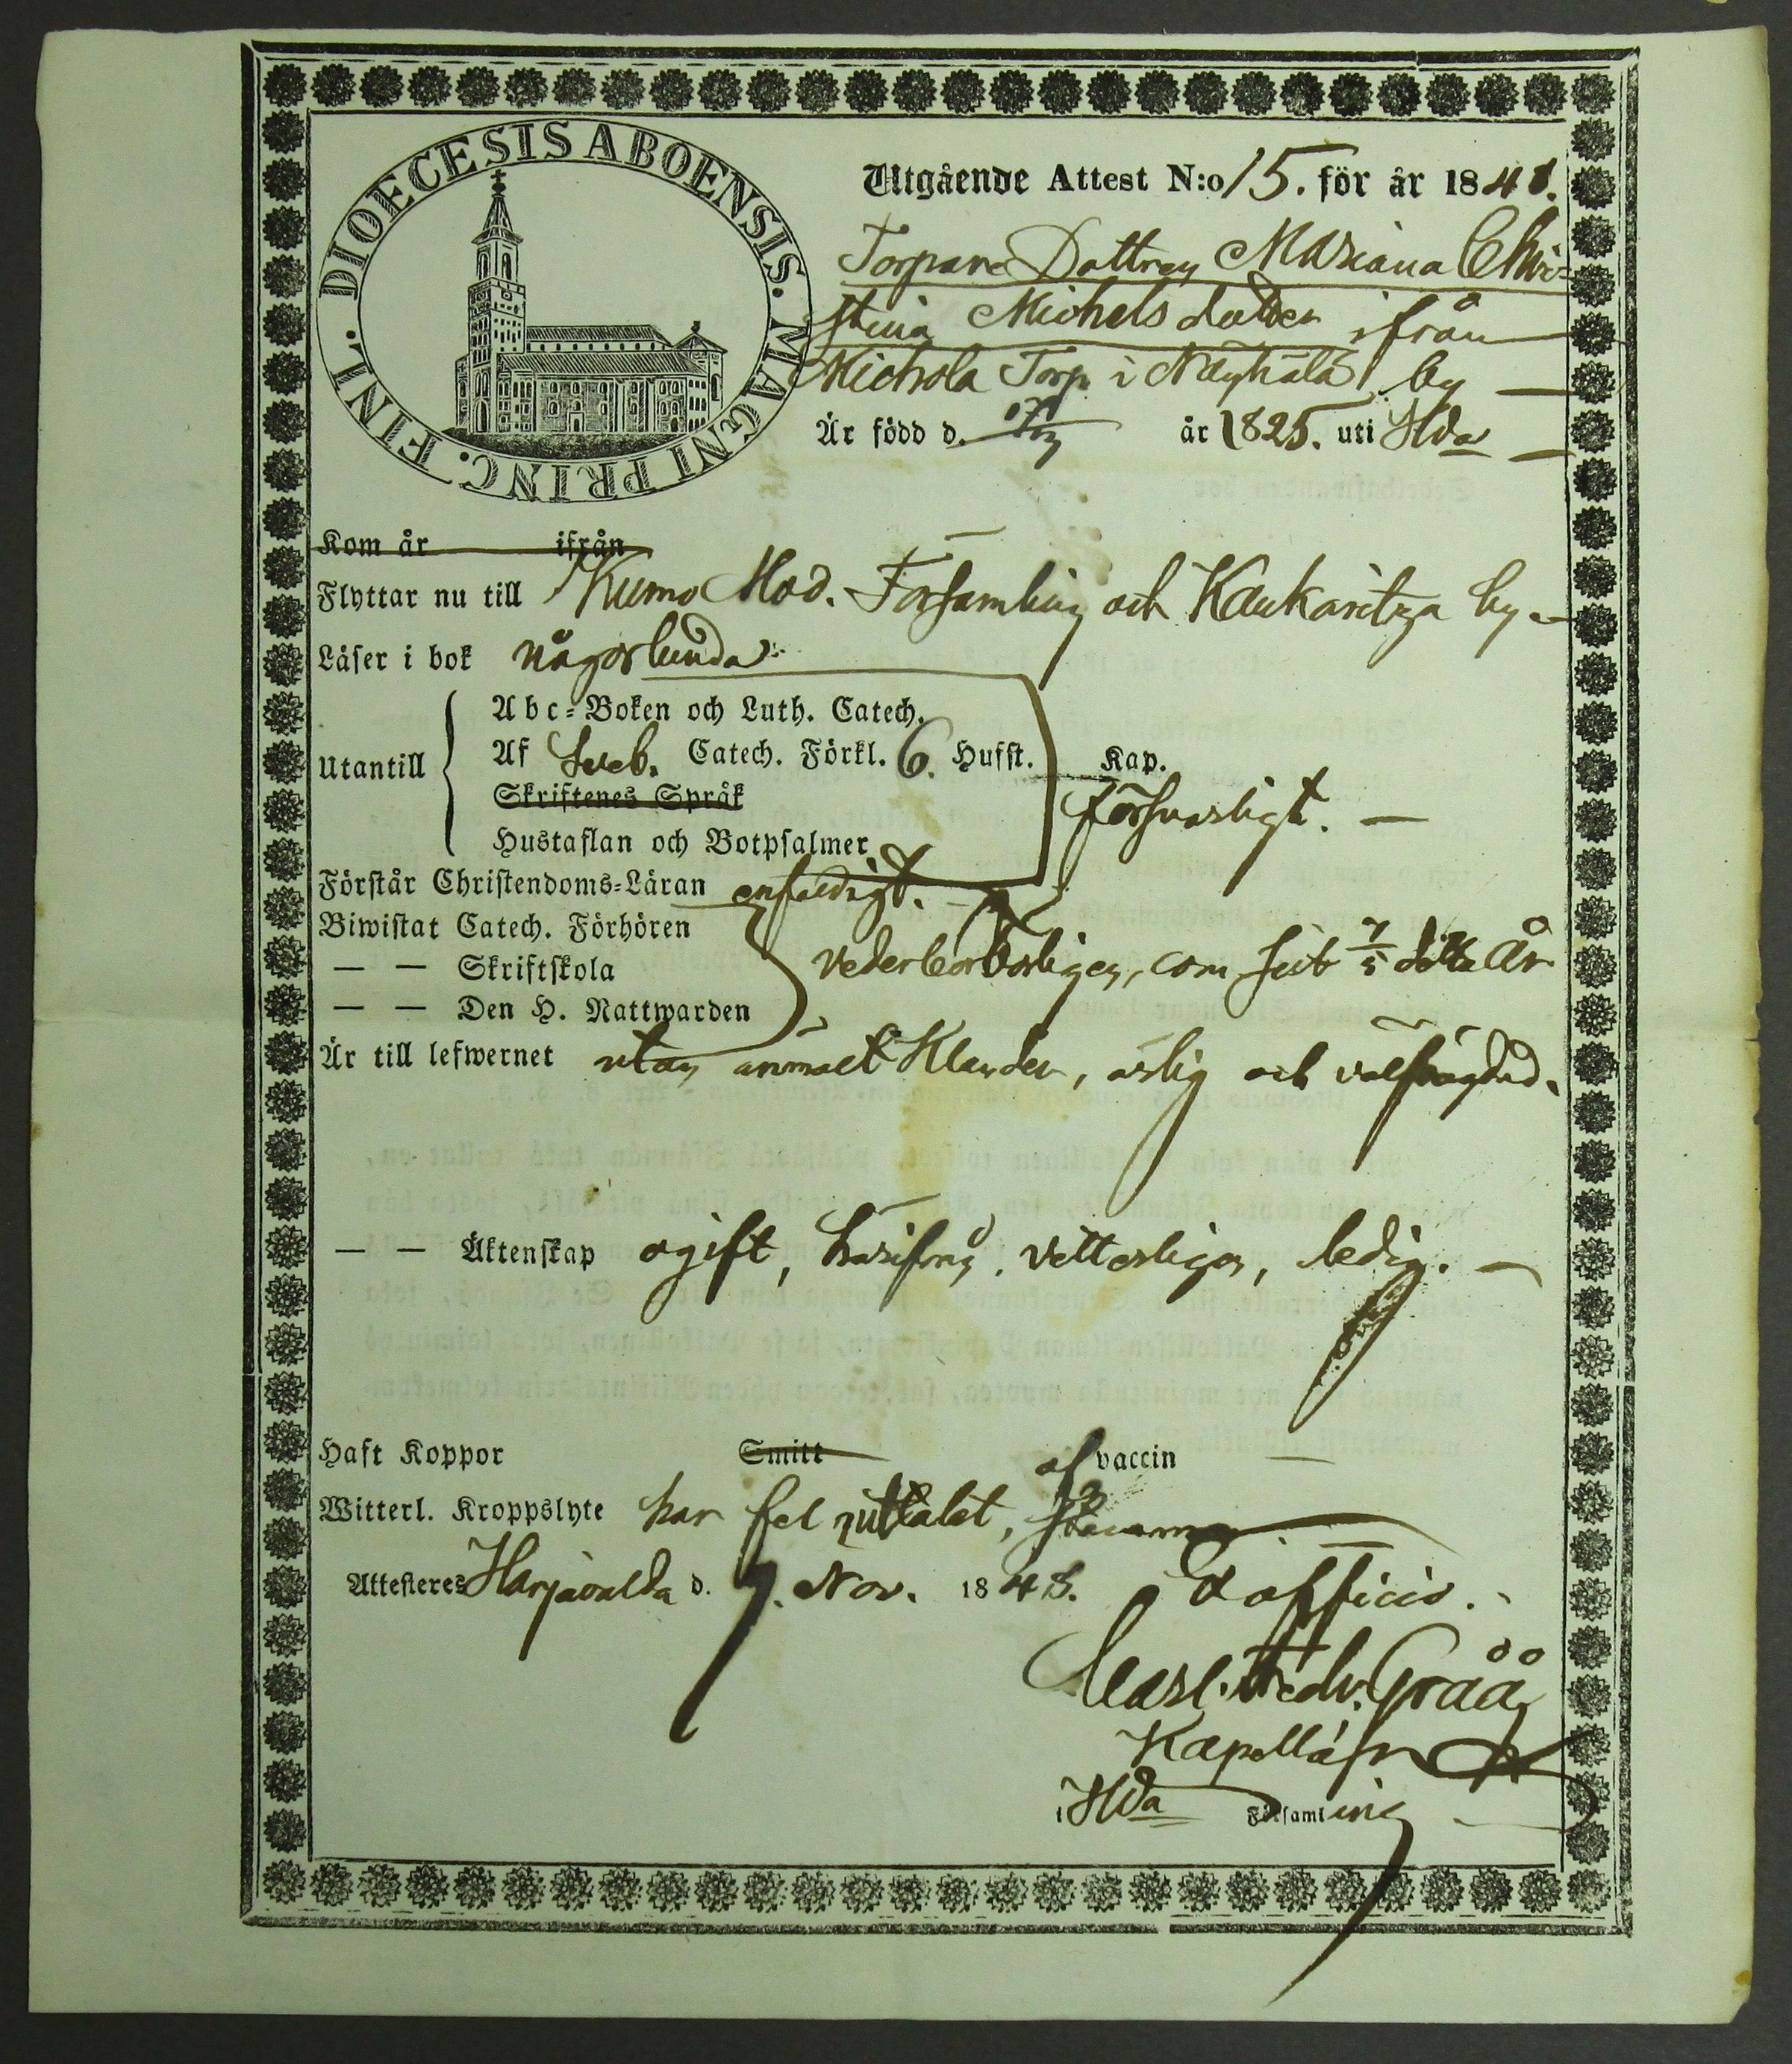 DIOECESIS ABOENSIS. MAGNI PRINC. FINL.
Utgående Attest N:o 15. för år 1848.
Torpare Dottren Mariana Chri-
stina Michelsdotter ifrån
Michola Torp i Näyhälä by
Är född d. år 1825. uti Hda
Kom år ifrån
Flyttar nu till Kumo Mod. Församling och Kaukaritza by.
Läser i bok någorlunda
Utantill
Abc-Boken och Luth. Catech.
Af Sveb. Catech. Förkl. 6. Hufst. Kap.
Skriftenes Språk försvarligt.
Hustaflan och Botpsalmer
Förstår Christendoms-Läran enfaldigt.
Biwistat Catech. Förhören
— — Skriftskola vederbörligen, com sist 7/5 detta År
— — Den H. Nattwarden
Är till lefwernet utan anmält Klander, ärlig och välfrägdad.
— — Äktenskap ogift, härifrån, vetterligen, ledig.
Haft Koppor Smitt af vaccin
Witterl. Kroppslyte har fel i uttalet,
Attesteres Harjavalda d. 7. Nov. 1848. Ex officio.
Carl Fredr. Gråå
Kapellan
i Hda Församling